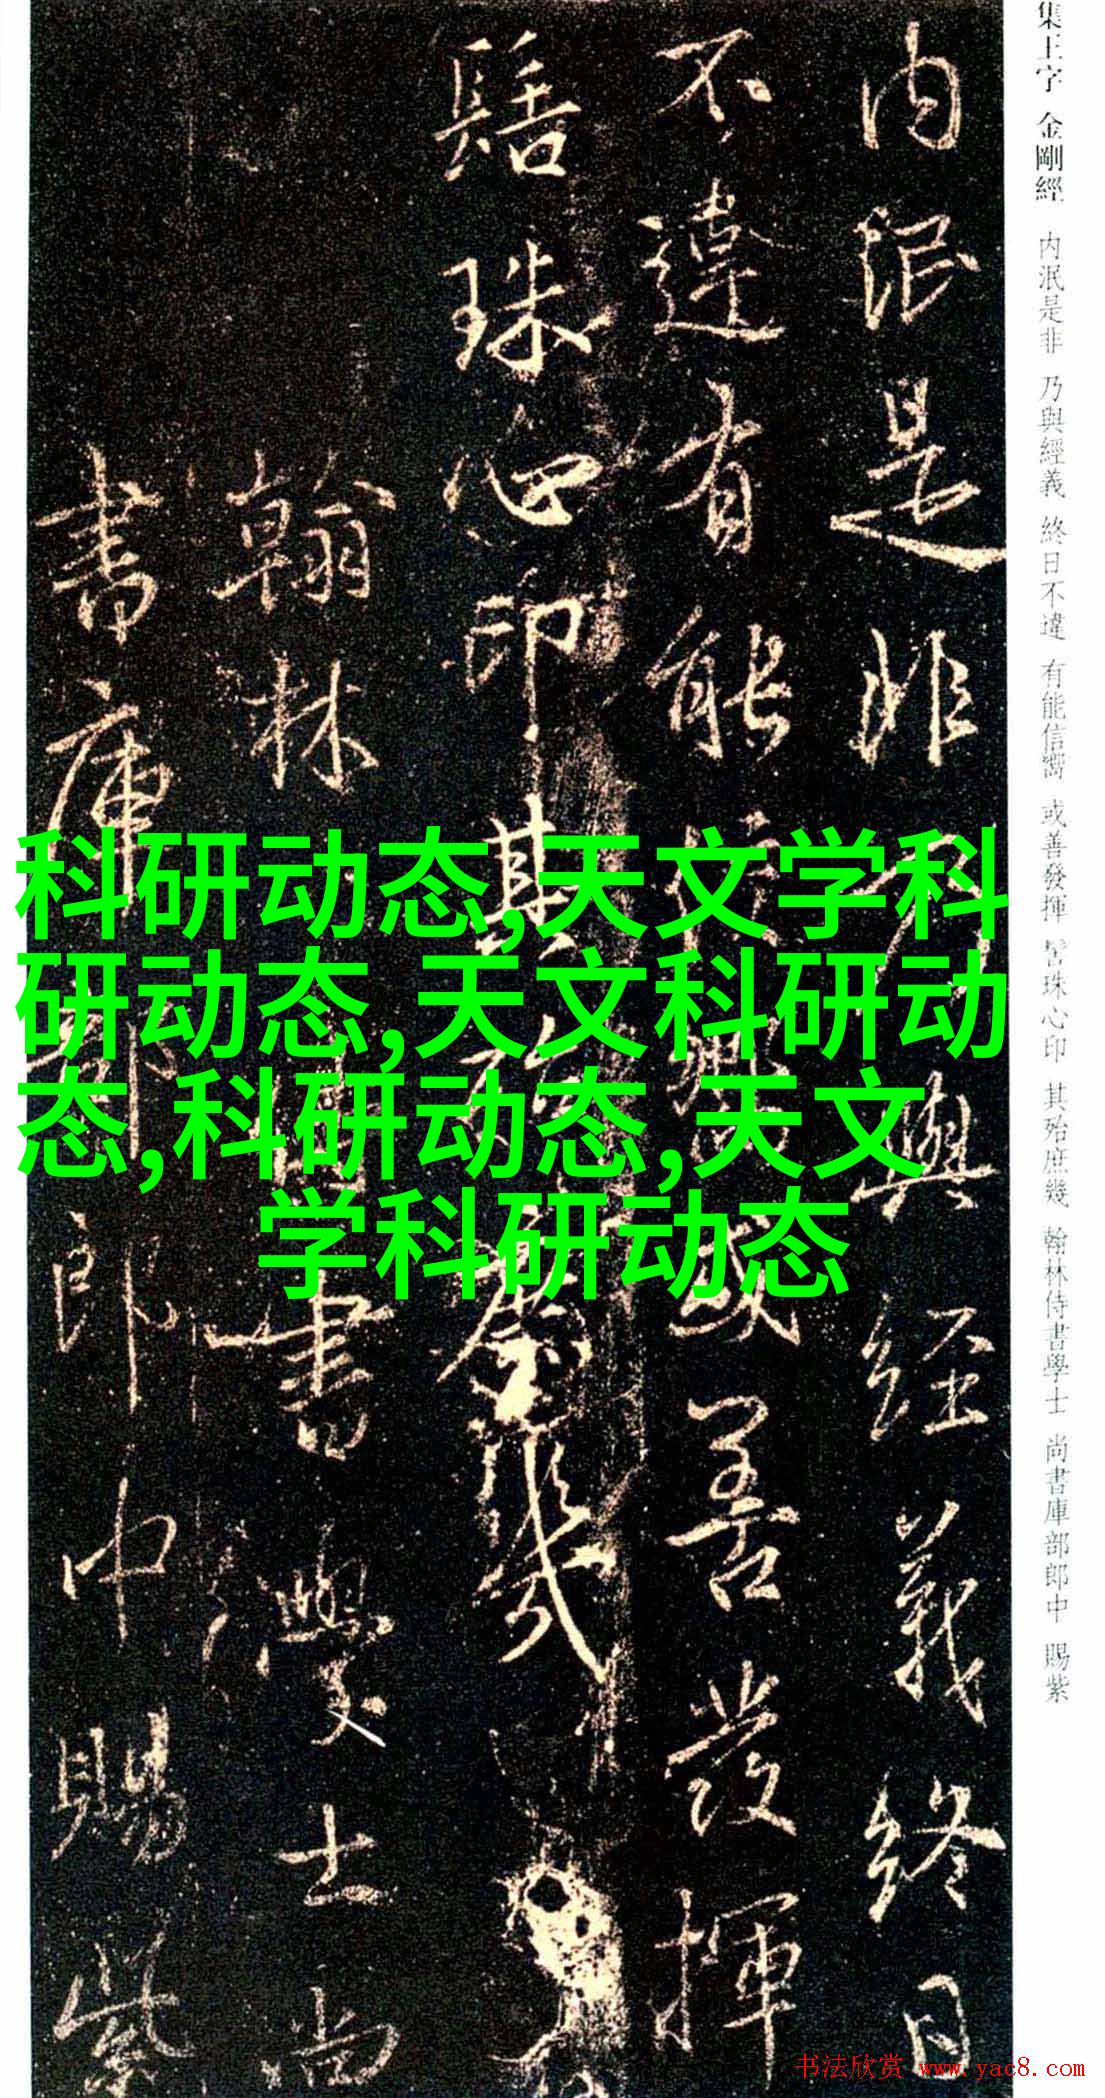 集王字 金剛經 内泯是非 乃與經義 終日不違 有能信嚮 或善發揮 髻珠心印 其殆庶幾 翰林侍書學士 尚書庫部郎中 賜紫
内泯是非乃與經義終日
不違有能信嚮或善發揮
髻珠心印其殆庶幾
翰林侍書學士尚
書庫部郎中賜紫
科研动态,天文学科
研动态,天文科研动
态,科研动态,天文
学科研动态
书法欣赏 www.yac8.com